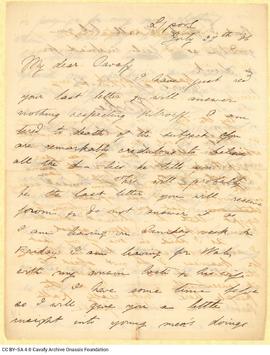 L'pool
July 29th
My dear Cavafy
I have just read
your last letter & will answer
nothing respecting I am
tired to death of the subject. You
are remarkably credulous to believe
all the he tells you
This will probably
be the last letter you will receive
from so do not answer it as
I am leaving on Sunday week
Friday I am leaving for Wales
with my cousin back to his
I have some time
so I will give you a little
insight into young men's doings
CC BY-SA 4.0 Cavafy Archive Onassis Foundation